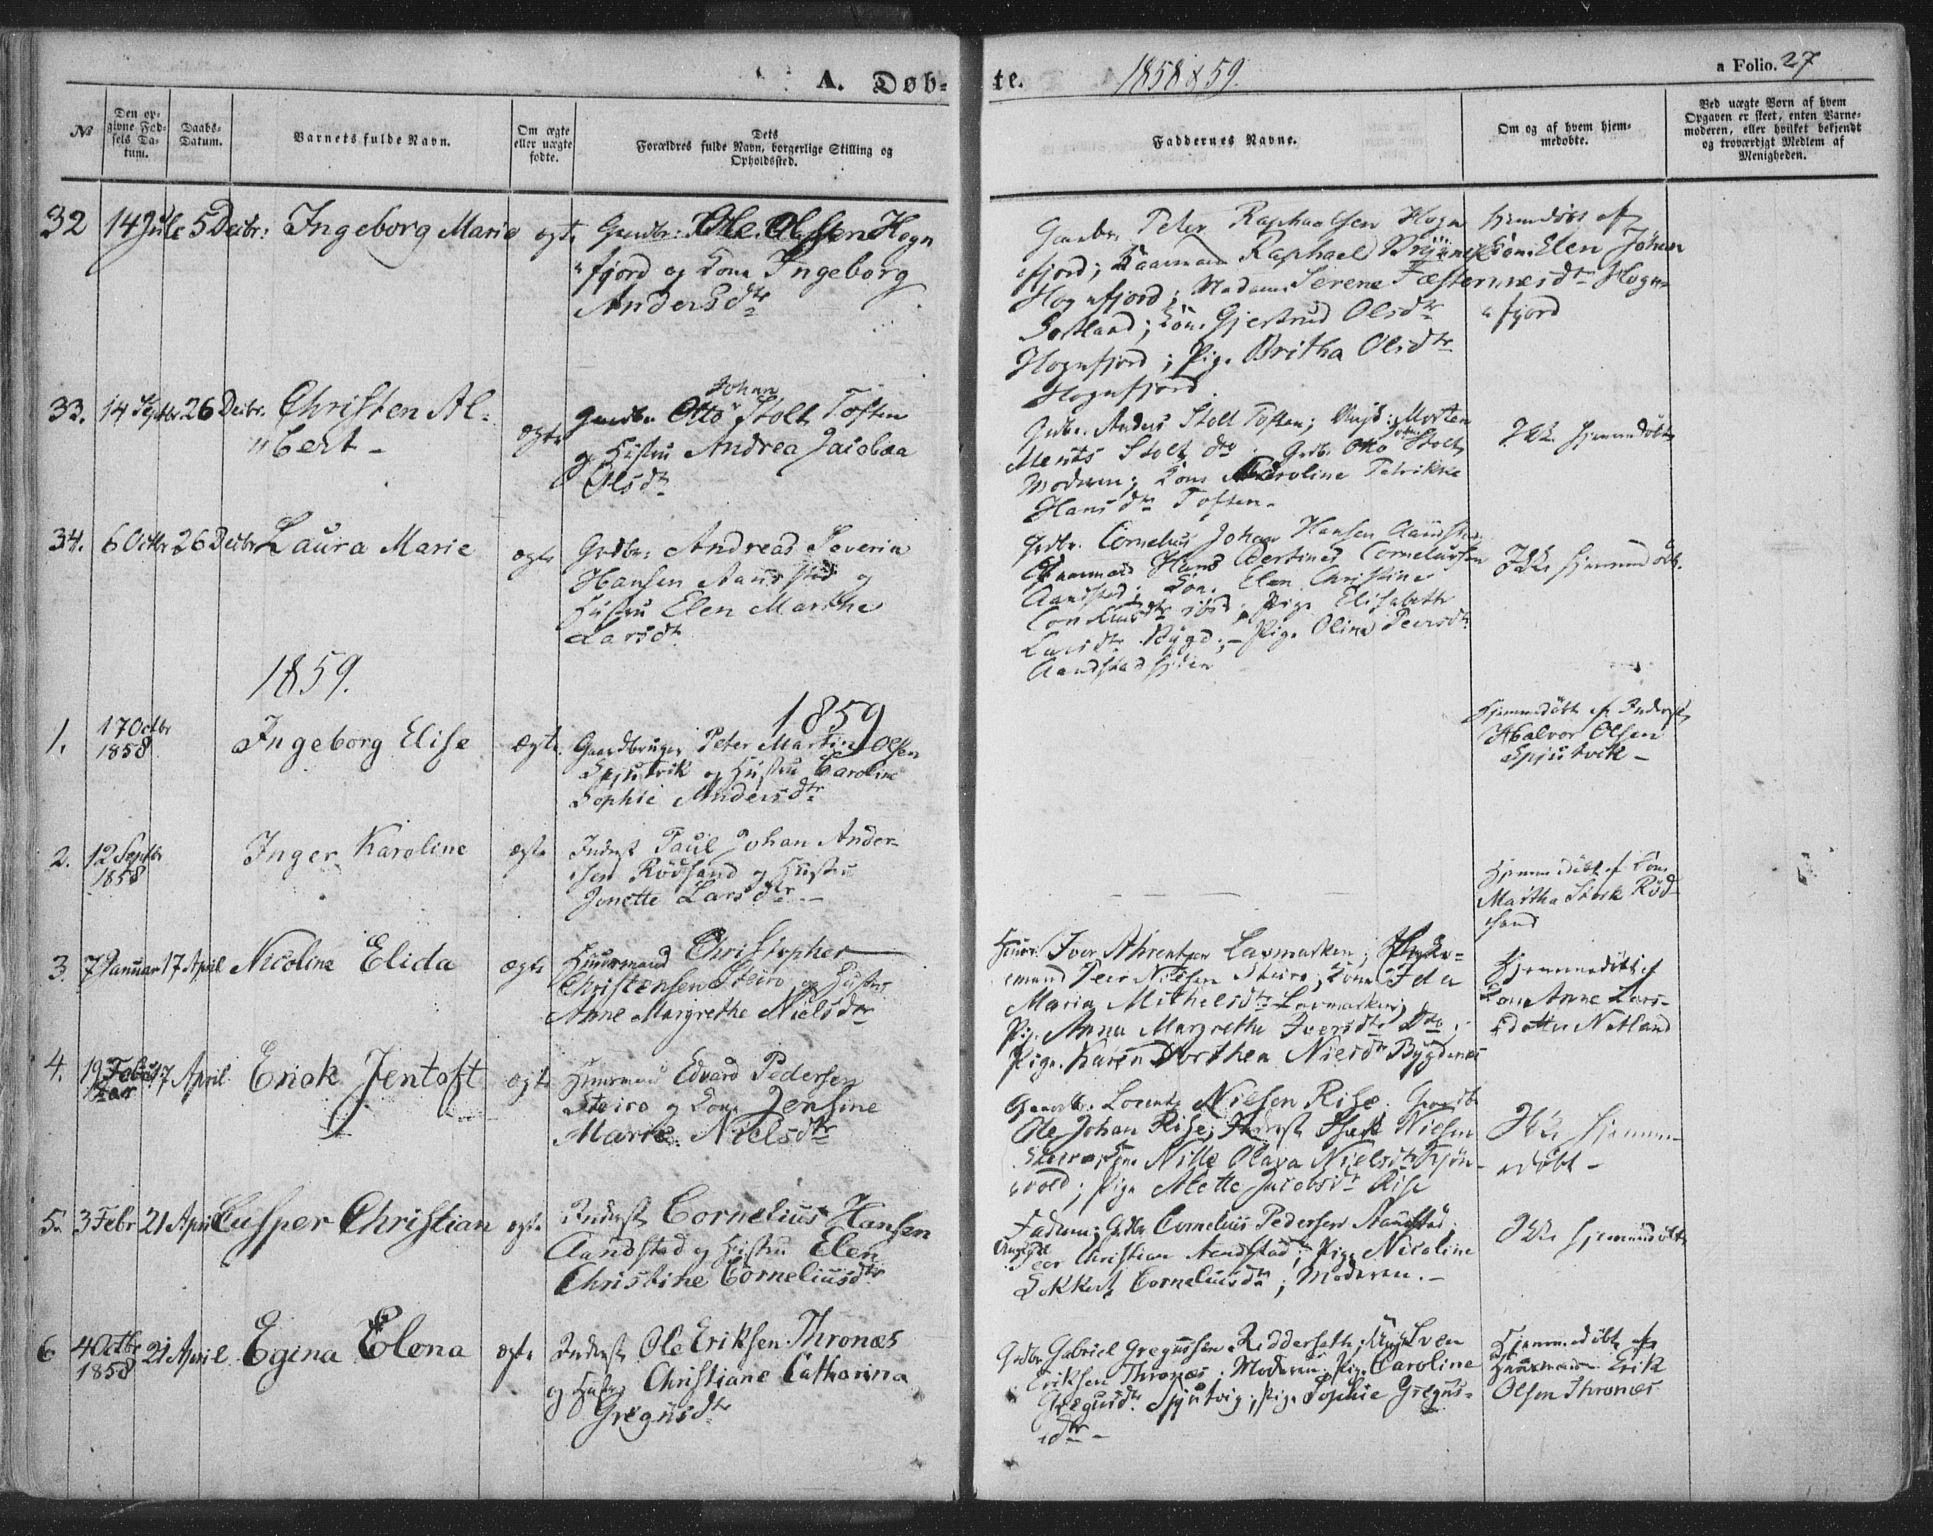 A. Døb-
te. 1858 & 59.
a Folio. 27
No
Den op-
givne Fød-
sels Da-
tum.
Daabs-
Datum.
Barnets fulde Navn.
Om ægte
eller uægte
fødte.
Dets
Forældres fulde Navn, borgerlige Stilling og
Opholdssted.
Faddernes Navne.
Om og af hvem hjem-
medøbte.
Ved uægte Børn af hvem
Opgaven er skeet, enten Barne-
moderen, eller hvilket bekjendt
og troværdigt Medlem af
Menigheden.
32 14 Jule 5 Decbr: Ingeborg Marie ægte Gaardbr: Ole Olsen Hogn
fjord og Kone Ingeborg
Andersdtr
Gaardbr. Peter Raphaelsen Hogn
fjord; Raphael
Hognfjord; Madame Serene
Sortland; Kone Gjertrud Olsdtr
Hognfjord; Pige Britha Olsdtr
Hognfjord.
Hjemdøbt af
Kone Elen Johan
nesdtr Hogn-
fjord
33. 14 Septbr 26 Decbr: Christen Al-
"bert - ægte
Gaardbr. Otto Johan Stolt Toften
og Hustru Andrea Jacobæa
Olsdtr
Grdbr. Anders Stolt Toften; Ungk: Morten
Ments Stolt do; Grdb. Otto Johan Stolt
Moderen; Kone Karoline Petrikke
Hansdtr Toften.
Ikke hjemmedøbt
34. 6 Octbr 26 Decbr Laura Marie ægte
Grdbr: Andreas Severin
Hansen Aandstad og
Hustru Elen Marthe
Larsdtr
Grdbr. Cornelius Johan Hansen Aandstad
Hans Cornelius
Aandstad; Kone Elen Christine
Corneliusdtr ibid; Pige Elisabeth
Larsdtr Bygd; - Pige Olina Peersdtr
Aandstadhjden
Ikke hjemmedøbt.
1859.
1859
1. 17 Octbr
1858
Ingeborg Elise ægte Gaardbruger Peter Martin Olsen
Spjutvik og Hustru Caroline
Sophie Andersdtr
Hjemmedøbt af Inderst
Halvor Olsen
Spjutvik -
2. 12 Septbr
1858
Inger Karoline ægte Inderst Paul Johan Ander-
sen Rödsand og Hustru
Jenette Larsdtr -
Hjemmedøbt af Kone
Martha Stork Röd
sand
3. 7 Januar 17 April Nicoline Elida ægte Huusmand Christopher
Christensen Steiro og Hustru
Anne Margrethe Nielsdtr
Huusm. Iver Ahrentsen Laxmarken;
Peer Nilsen Steiro; Kone Ida
Maria Mithelsdtr Laxmarken;
Pige Anna Margrethe Iversdtr Do;
Pige Karen Dorthea Nielsdtr Bygdenes
Hjemmedøbt af
Kone Anne Lars-
dotter Natland
4. 19 Februar 17 April Erick Jentoft ægte Huusmand Edvard Pedersen
Steiro og Kone Jensine
Marie Nielsdtr
Gaardbr. Lorents Nielsen Rise. Gaardbr.
Ole Johan Rise; Inderst Isack Nielsen
Steiro; Kone Nille Olava Nielsdtr Kjøn-
svold; Pige Mette Jacobsdtr Rise
Ikke hjemme-
døbt -
5. 3 Febr 21 April Casper Christian ægte Inderst Cornelius Hansen
Aandstad og Hustru Elen
Christine Corneliusdtr
Faderen; Gdbr. Cornelius Pedersen Aandstad;
Ungkarl Peer Christian Aandstad; Pige Nicoline
Corneliusdtr; Moderen. -
Ikke hjemmedøbt
6 4 Octbr
1858 21 April Egina Elena ægte Inderst Ole Eriksen Thronæs
og Hustru Christiane Catharina
Gregusdtr
Grdbr Gabriel Gregussen Ridderseth; Ungk. Sven
Eriksen Thronæs; Moderen; Pige Caroline
Gregusdtr. Spjutvig; Pige Sophie Gregus-
dtr -
Hjemmedøbt af
Huusmand Erik
Olsen Thronæs